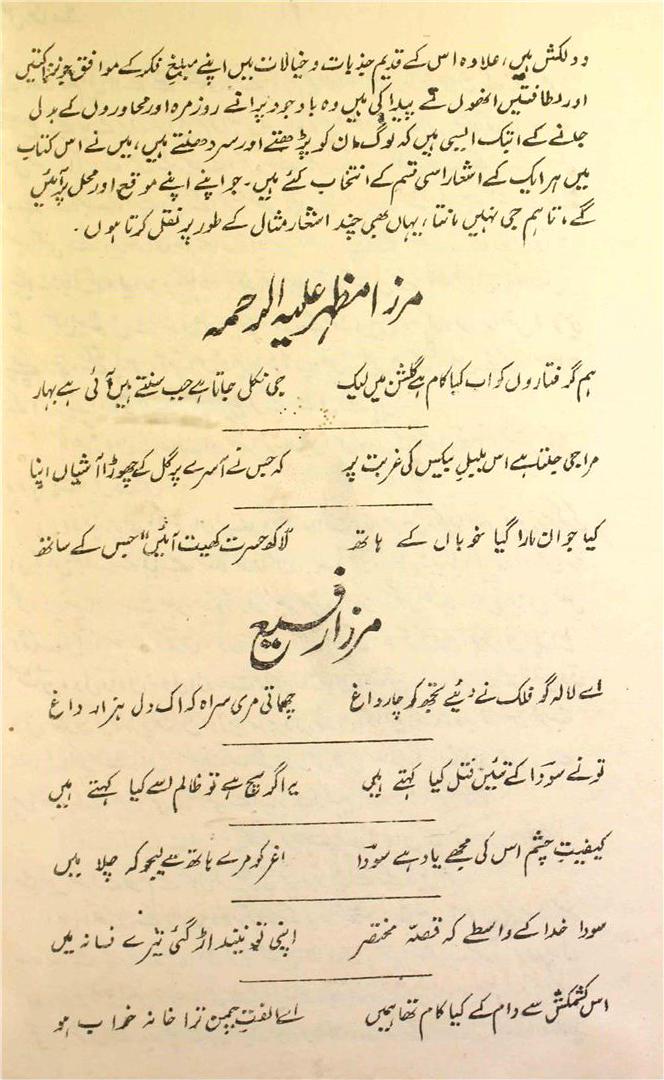 دولکش ہیں، علاوہ اس کے قدیم جذبات و خیالات میں اپنے مبلغِ فکر کے موافق جو نزاکتیں
اور لطافتیں انھوں نے پیدا کی ہیں وہ باوجود پرانے روزمرہ اور محاوروں کے بدلی
جانے کے اب تک ایسی ہیں کہ لوگ ان کو پڑھتے اور سر دھنتے ہیں، میں نے اس کتاب
میں ہر ایک کے اشعار اسی قسم کے انتخاب کئے ہیں۔ جو اپنے اپنے موقع اور محل پر آئیں
گے، تاہم جی نہیں مانتا، یہاں بھی چند اشعار مثال کے طور پر نقل کرتا ہوں۔
مرزا مظہر علیہ الرحمہ
ہم گرفتاروں کو اب کیا کام ہے گلشن میں لیک جی نکل جاتا ہے جب سنتے ہیں آئی ہے بہار
مرا جی جلتا ہے اس بلبلِ بیکس کی غربت پر کہ جس نے آسرے پر گل کے چھوڑا آشیاں اپنا
کیا جوان مارا گیا خوباں کے ہاتھ لاکھ حسرت کھیت آئیں" جس کے ساتھ
مرزا رفیع
اے لالہ گو فلک نے دیئے تجھ کو چار داغ چھاتی مری سراہ کہ اک دل ہزار داغ
تو نے سودؔا کے تئیں قتل کیا کہتے ہیں یہ اگر سچ ہے تو ظالم اسے کیا کہتے ہیں
کیفیتِ چشم اس کی مجھے یاد ہے سودؔا اغر کو مرے ہاتھ سے لیجو کہ چلا میں
سودا خدا کے واسطے کہ قصّہ مختصر اپنی تو نیند اڑ گئی تیرے فسانہ میں
اس کشمکش سے دام کے کیا کام تھا ہمیں اے الفتِ چمن ترا خانہ خراب ہو